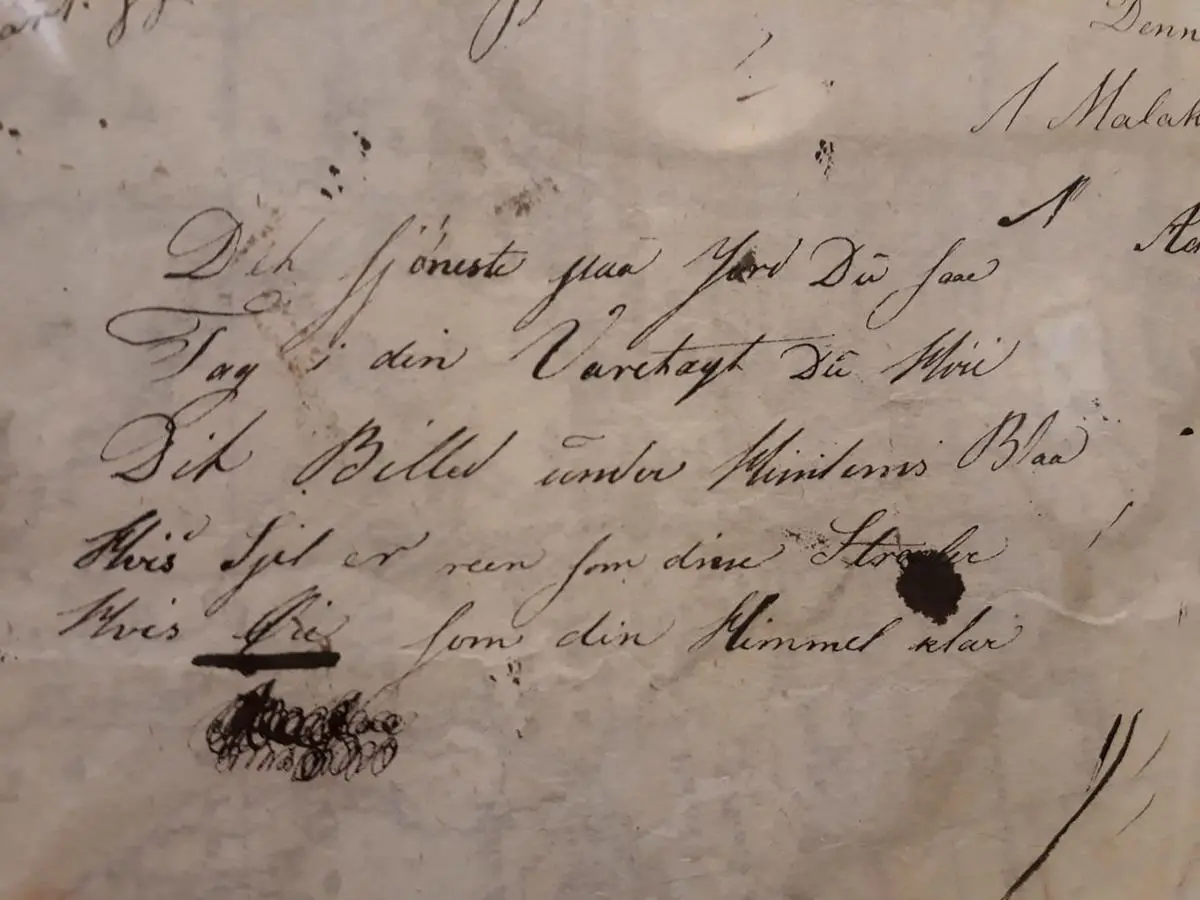 Denn
1 Malak
Deh sjöneste paa Jord Dū saae
Tag i din Varetagt Dū Hvii
Dit Billed ūnder Himlens Blaa
Hvis Sjel er reen som disse Straaler
Hvis Öie som din Himmel klar